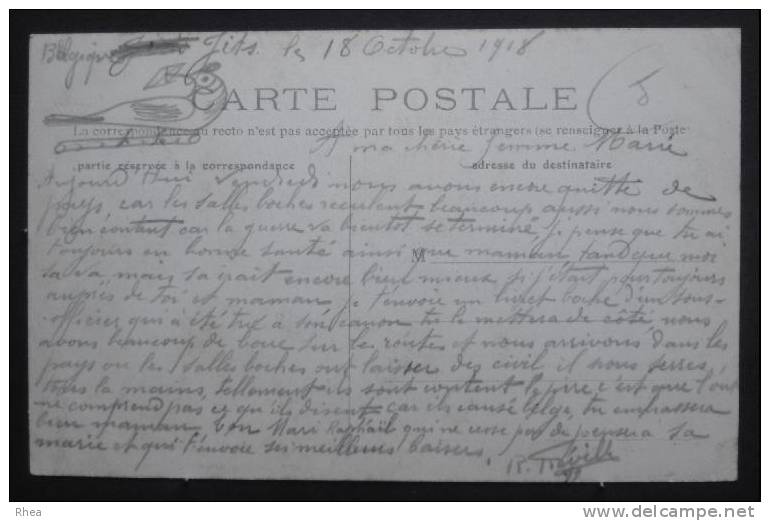 Belgique Jits. le 18 Octobre 1918
CARTE POSTALE
La correspondance au recto n'est pas acceptée par tous les pays étrangers (se renseigner à la Poste
A ma chérie femme Marie
partie réservée à la correspondance
adresse du destinataire
Aujourd Hui vendredi nous avons encore quitté de
pays, car les salles boches reculent beaucoup aussi nous sommes
bien contant car la guerre va bientot se terminé, je pense que tu ai
toujours en bonne santé ainsi que maman, tand que moi
M
sa va mais sa irait encore bien mieux si j'étais pour toujours
auprès de toi et maman je t'envoie un livret boche d'un sous-
officier qui a été tué a son canon tu le mettera de côté nous
avons beaucoup de boue sur les routes et nous arrivons dans les
pays ou les salles boches ont laisser des civil il nous serres
tous la mains, tellement ils sont content le pire c'est que l'on
ne comprend pas ce qu'ils disent car ils cause belge, tu embrassera
bien maman, ton Mari Raphaël qui ne cesse pas de penser a sa
marie et qui t'envoie ses meilleurs baisers.
R.
Rhea
delcampe.net